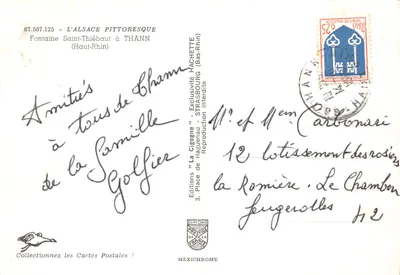 67.567.125 - L'ALSACE PITTORESQUE
Fontaine Saint-Thiébaut à THANN
(Haut-Rhin)
Amitiés
à tous de Thann
de la famille
Golfier
Editions "La Cigogne" - Exclusivité HACHETTE
3, Place de Haguenau - STRASBOURG (Bas-Rhin)
Reproduction interdite
THANN
Mr et Mem Carbonari
12 lotissement des rosiers
la Romière. Le Chambon
Feugerolles 42
Collectionnez les Cartes Postales !
MEXICHROME